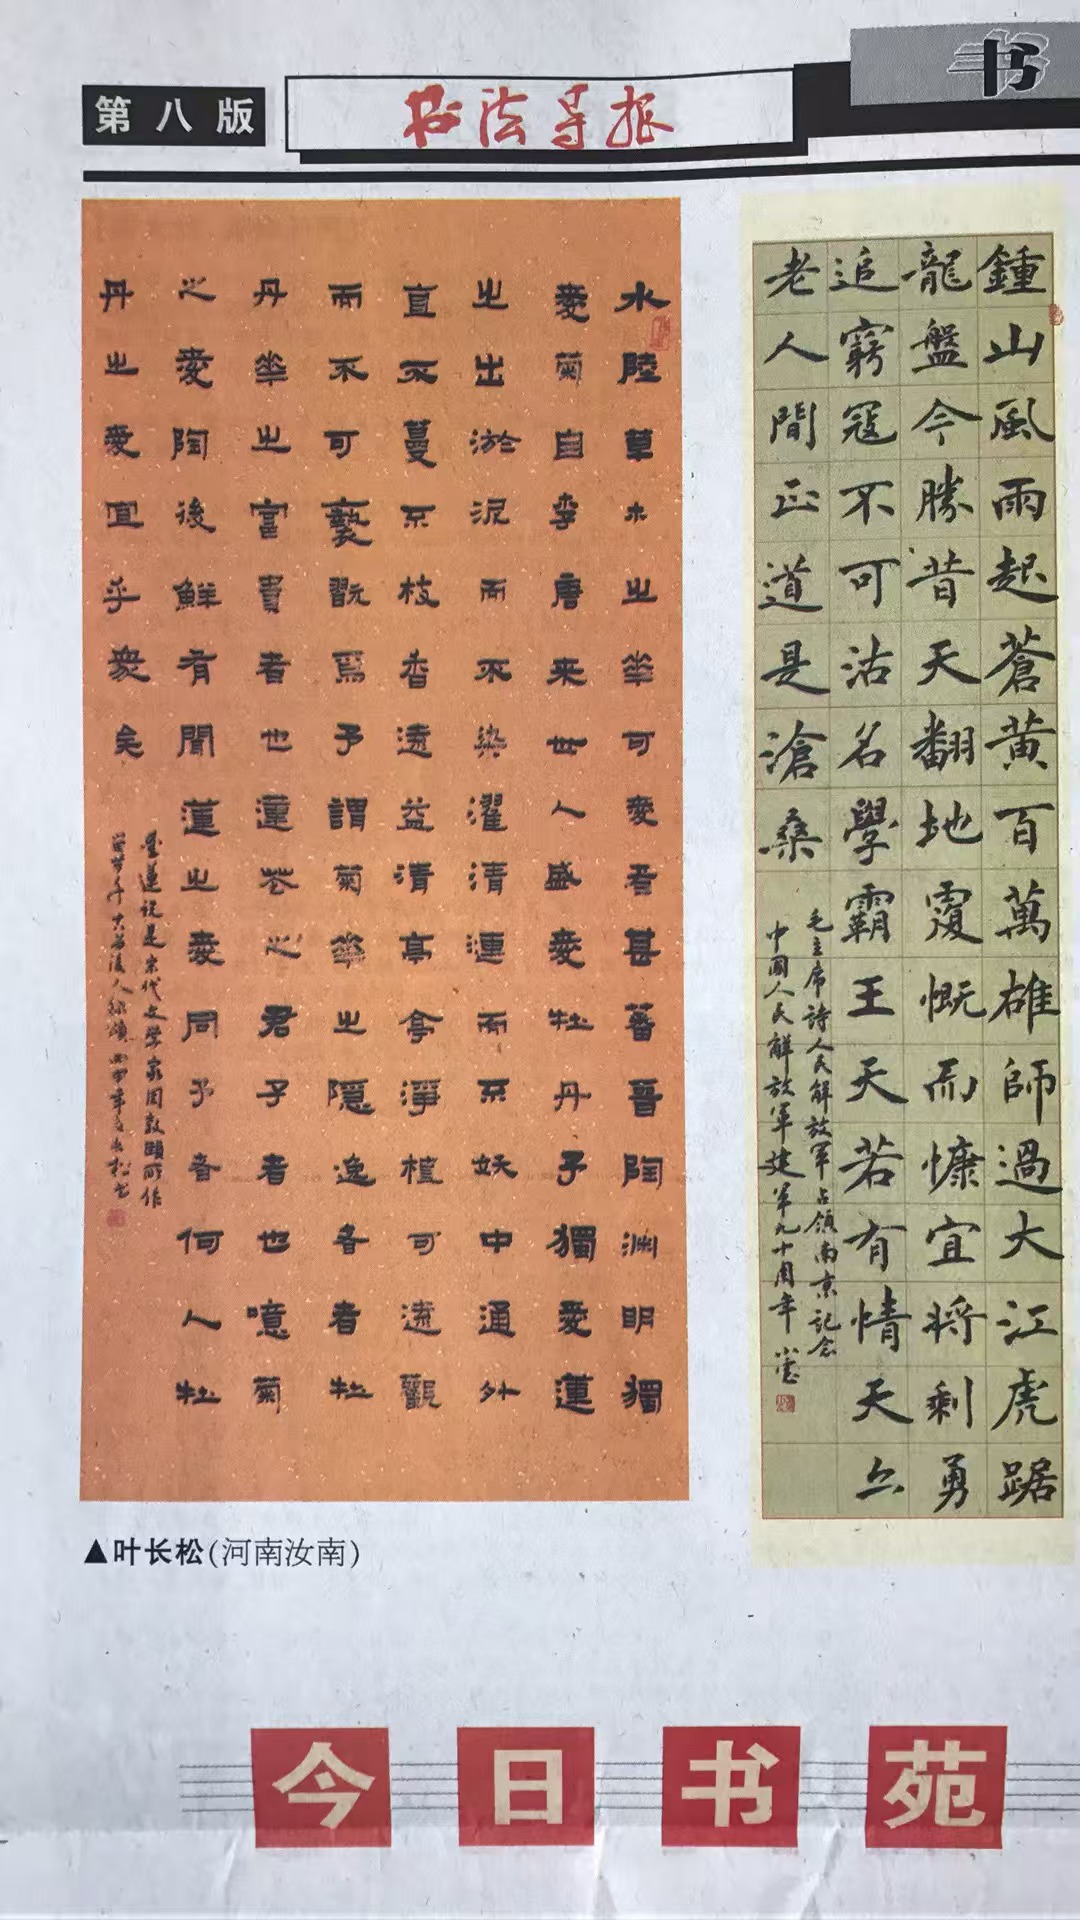 第八版
书法导报
书
水陸草木之華可愛者甚蕃晉陶渊明獨
愛菊自李唐来世人盛愛牡丹予獨愛蓮
之出淤泥而不染濯清漣而不妖中通外
直不蔓不枝香遠益清亭亭淨植可遠觀
而不可褻翫焉予謂菊華之隱逸者牡
丹華之富貴者也蓮花之君子者也噫菊
之愛陶後鮮有聞蓮之愛同予者何人牡
丹之愛宜乎衆矣
蓮说是宋代文学家周敦頤所作
年长松书
鍾山風雨起蒼黄百萬雄師過大江虎踞
龍盤今勝昔天翻地覆慨而慷宜将剩勇
追窮寇不可沽名學霸王天若有情天亦
老人間正道是滄桑
毛主席詩人民解放軍占領南京記念
中國人民解放軍建軍九十周年
▲叶长松(河南汝南)
今日书苑